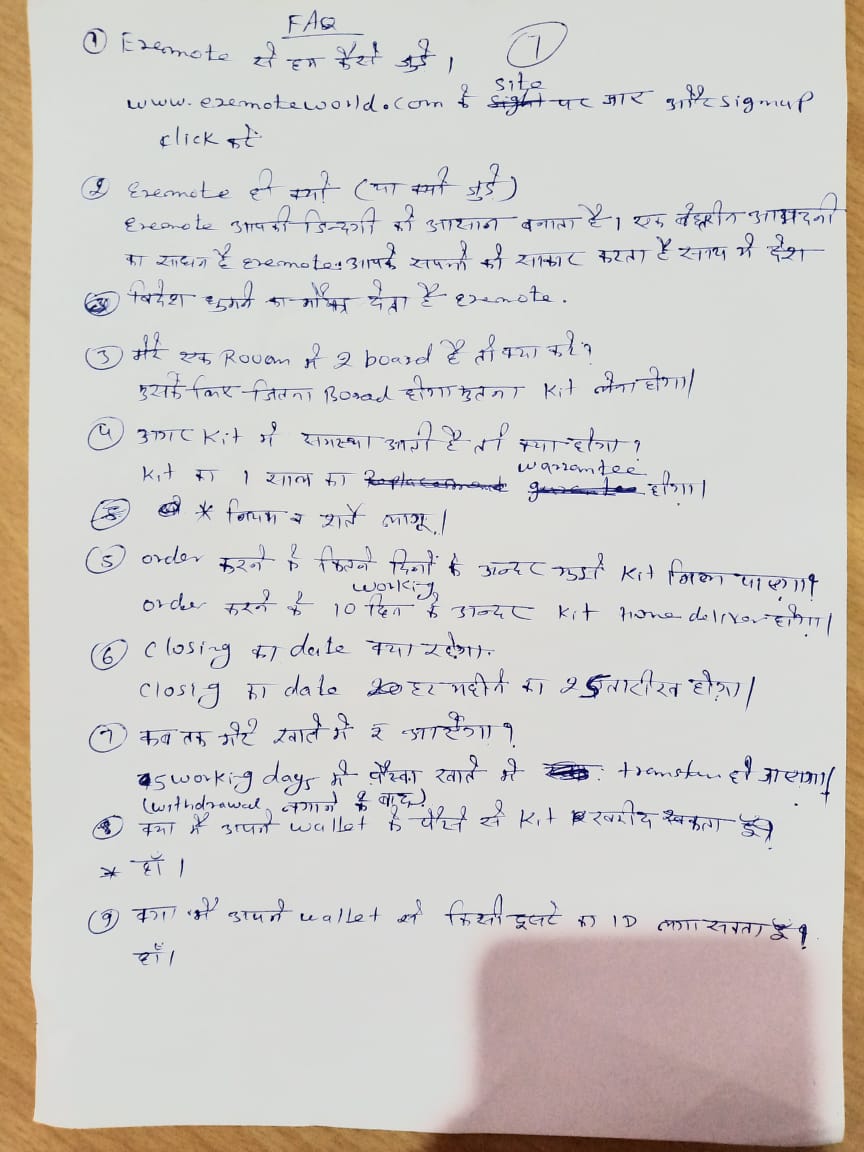 FAQ
1
① Exemote से हम कैसे जुड़े।
site
www.exemoteworld.com के sight पर जाए और signup
click करें
② Exemote ही क्यों (या क्यों जुड़े)
Exemote आपकी जिन्दगी को आसान बनाता है। एक बेहतरीन आमदनी
का साधन है exemote. आपके सपनों को साकार करता है साथ में देश
विदेश घुमने का मौका देता है exemote.
③ मेरे एक Room में 2 board है तो क्या करे?
उसके लिए जितना Borad होगा उतना Kit लेना होगा।
④ अगर Kit में समस्या आती है तो क्या होगा?
warrantee
Kit का 1 साल का Replacement guarantee होगा।
* नियम व शर्ते लागू।
⑤ order करने के कितने दिनों के अन्दर मुझे Kit मिल पाएगा?
working
order करने के 10 दिन के अन्दर Kit Home deliver होगा।
⑥ closing का date क्या रहेगा.
closig का date हर महीने का 25 तारीख होगा।
⑦ कब तक मेरे खाते में ₹ आऐगा?
5 working days में पैसा खाते में transfer हो जाएगा।
(withdrawal लगाने के बाद)
⑧ क्या मैं अपने wallet के पैसे से Kit खरीद सकता हूँ?
* हाँ।
⑨ क्या मैं अपने wallet से किसी दूसरे का ID लगा सकता हूँ?
हाँ।